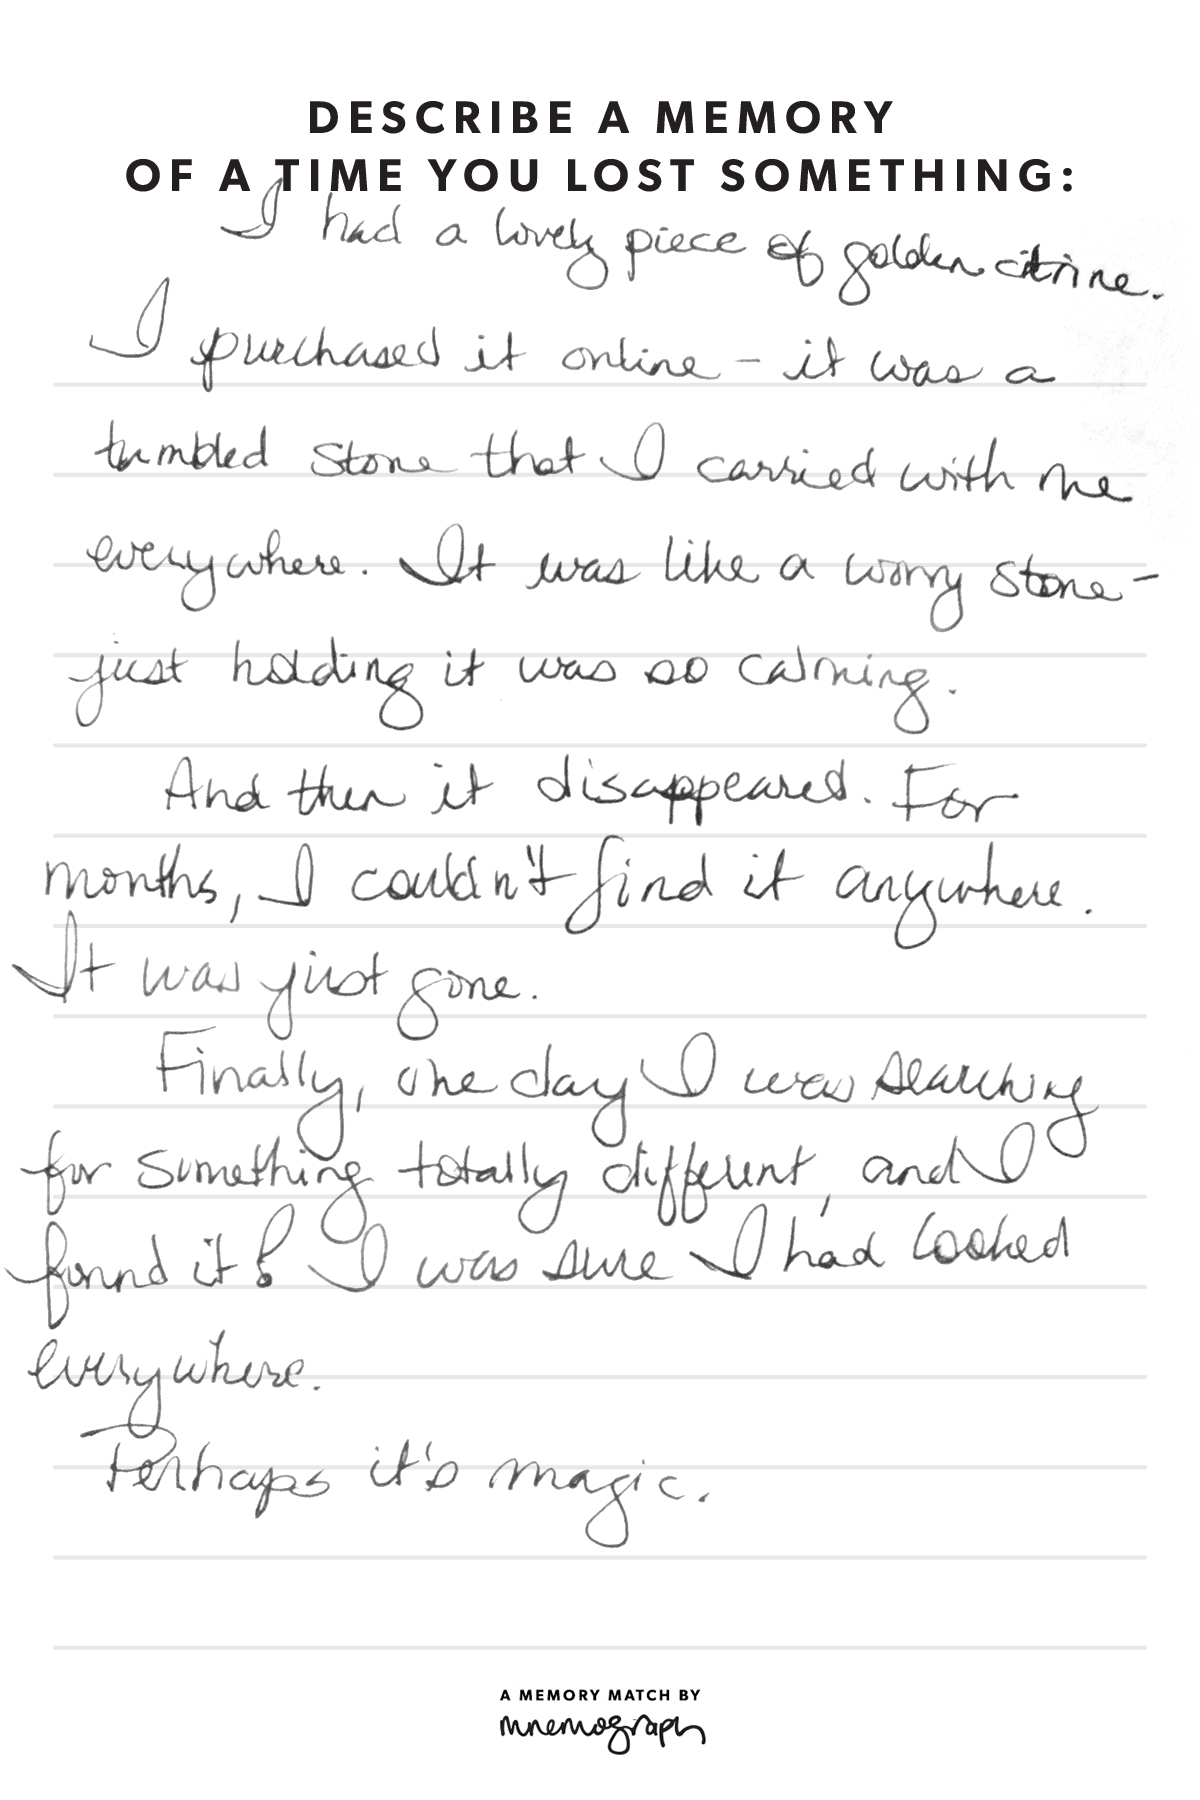 DESCRIBE A MEMORY
OF A TIME YOU LOST SOMETHING:
I had a lovely piece of golden citrine.
I purchased it online - it was a
tumbled stone that I carried with me
everywhere. It was like a worry stone -
just holding it was so calming.
And then it disappeared. For
months, I couldn't find it anywhere.
It was just gone.
Finally, one day I was searching
for something totally different, and I
found it! I was sure I had looked
everywhere.
Perhaps it's magic.
A MEMORY MATCH BY
mnemograph